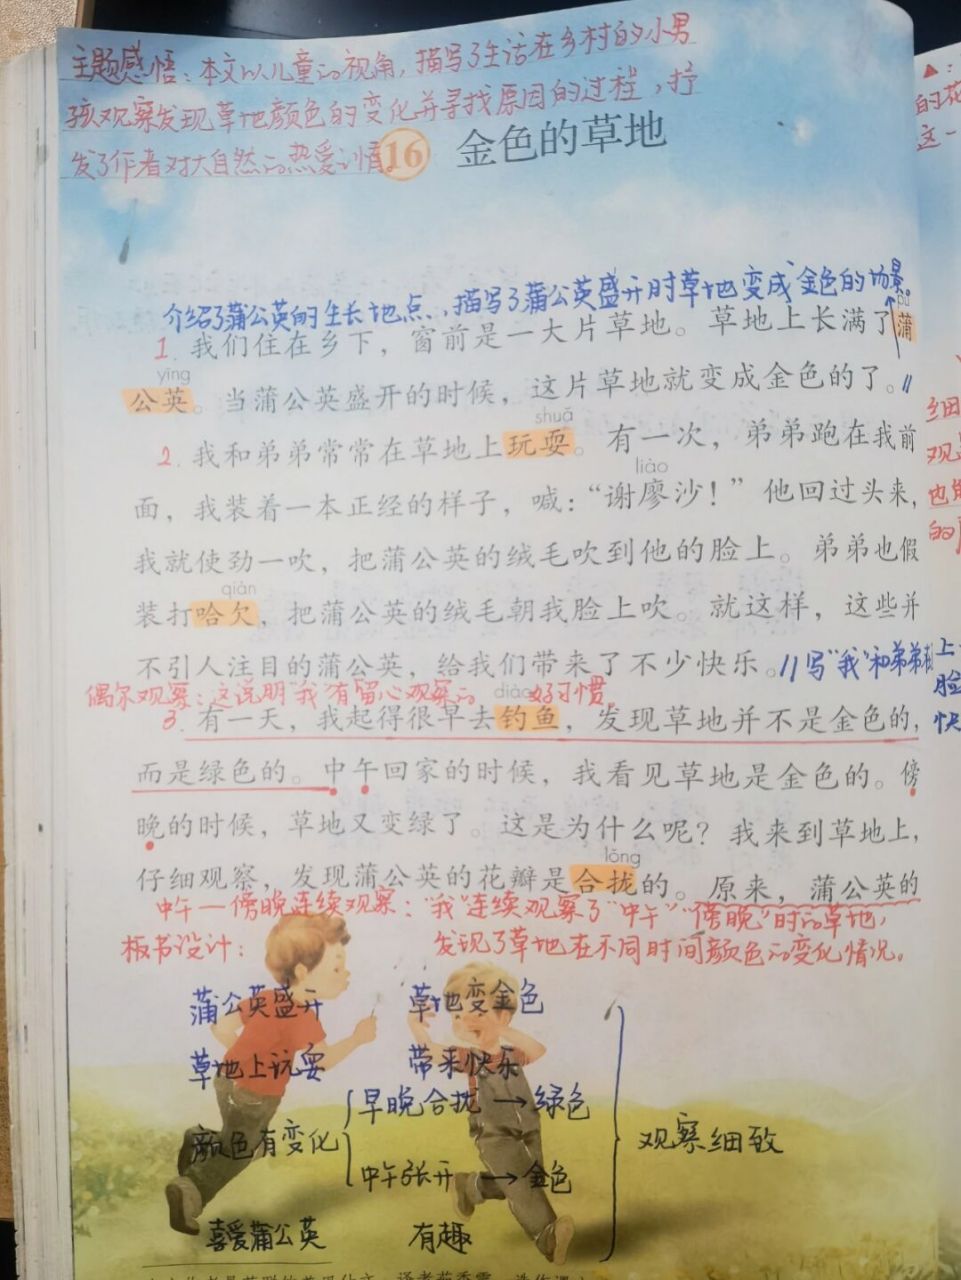 主题感悟：本文以儿童的视角，描写了生活在乡村的小男
孩观察发现草地颜色的变化并寻找原因的过程，抒
发了作者对大自然的热爱之情。
16 金色的草地
介绍了蒲公英的生长地点，描写了蒲公英盛开时草地变成金色的场景
pú
1. 我们住在乡下，窗前是一大片草地。草地上长满了蒲
yīng
公英。当蒲公英盛开的时候，这片草地就变成金色的了。//
shuǎ
2. 我和弟弟常常在草地上玩耍。有一次，弟弟跑在我前
liào
面，我装着一本正经的样子，喊：“谢廖沙！”他回过头来，
我就使劲一吹，把蒲公英的绒毛吹到他的脸上。弟弟也假
qiàn
装打哈欠，把蒲公英的绒毛朝我脸上吹。就这样，这些并
不引人注目的蒲公英，给我们带来了不少快乐。//写“我”和弟弟
偶尔观察：这说明“我”有留心观察的好习惯
diào
3. 有一天，我起得很早去钓鱼，发现草地并不是金色的，
而是绿色的。中午回家的时候，我看见草地是金色的。傍
晚的时候，草地又变绿了。这是为什么呢？我来到草地上，
lǒng
仔细观察，发现蒲公英的花瓣是合拢的。原来，蒲公英的
中午—傍晚连续观察：“我”连续观察了“中午”“傍晚”时的草地，
板书设计： 发现了草地在不同时间颜色的变化情况。
蒲公英盛开 草地变金色
草地上玩耍 带来快乐
早晚合拢→绿色
颜色有变化 观察细致
中午张开→金色
喜爱蒲公英 有趣
▲：
的花
这一
细
观
也
的
上
脸
快